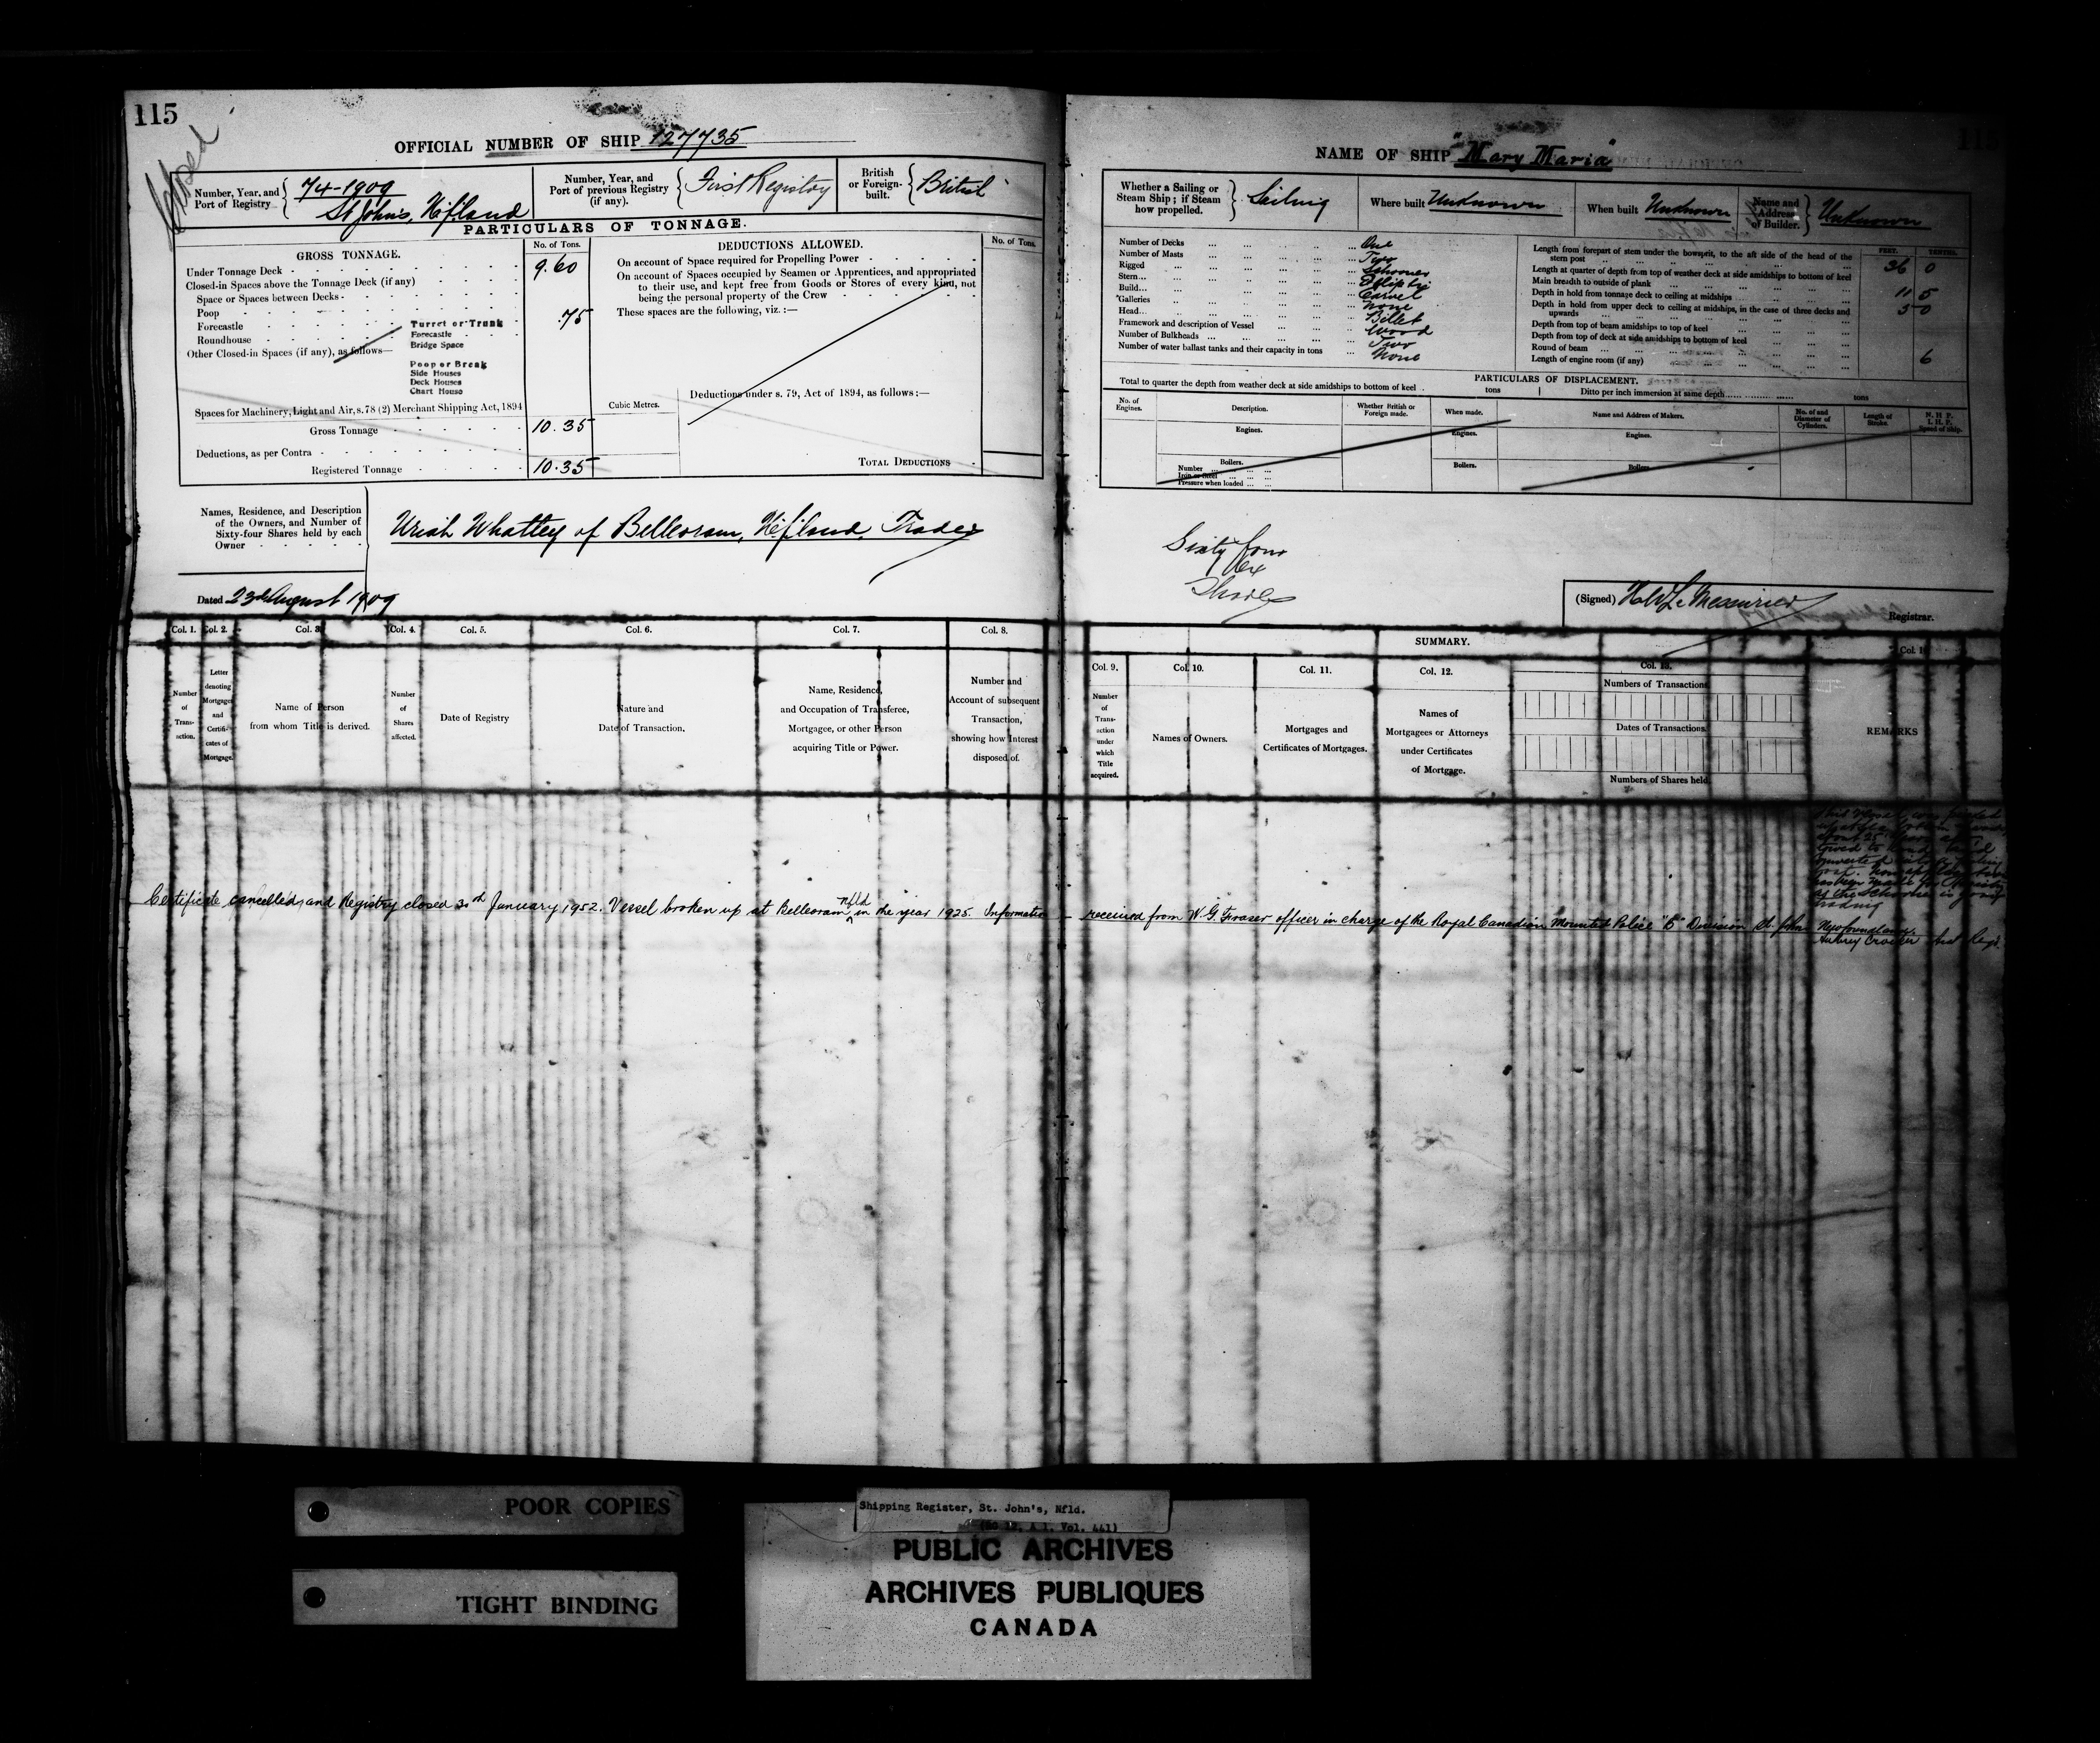 115
Closed
OFFICIAL NUMBER OF SHIP 127735
Number, Year, and Port of Registry
74-1909
St John's, N.f.land
Number, Year, and Port of previous Registry (if any).
First Registry
British or Foreign-built.
British
PARTICULARS OF TONNAGE.
GROSS TONNAGE.
No. of Tons.
Under Tonnage Deck
9.60
Closed-in Spaces above the Tonnage Deck (if any)
Space or Spaces between Decks
Poop
Forecastle
Roundhouse
Other Closed-in Spaces (if any), as follows—
Turret or Trunk
.75
Forecastle
Bridge Space
Poop or Break
Side Houses
Deck Houses
Chart House
Spaces for Machinery, Light and Air, s.78 (2) Merchant Shipping Act, 1894
Gross Tonnage
10.35
Deductions, as per Contra
Registered Tonnage
10.35
Cubic Metres.
DEDUCTIONS ALLOWED.
No. of Tons.
On account of Space required for Propelling Power
On account of Spaces occupied by Seamen or Apprentices, and appropriated
to their use, and kept free from Goods or Stores of every kind, not
being the personal property of the Crew
These spaces are the following, viz. :—
Deductions under s. 79, Act of 1894, as follows:—
TOTAL DEDUCTIONS
Names, Residence, and Description
of the Owners, and Number of
Sixty-four Shares held by each
Owner
Uriah Whattey of Belleoram, N.f.land, Trader
Dated 23rd August 1909
Col. 1. Col. 2. Col. 3. Col. 4. Col. 5. Col. 6. Col. 7. Col. 8.
Number of Transaction.
Letter denoting Mortgages and Certificates of Mortgage.
Name of Person from whom Title is derived.
Number of Shares affected.
Date of Registry
Nature and Date of Transaction.
Name, Residence, and Occupation of Transferee, Mortgagee, or other Person acquiring Title or Power.
Number and Account of subsequent Transaction, showing how Interest disposed of.
NAME OF SHIP "Mary Maria"
115
Whether a Sailing or Steam Ship; if Steam how propelled.
Sailing
Where built Unknown
When built Unknown
Name and Address of Builder.
Unknown
Number of Decks One
Number of Masts Two
Rigged Schooner
Stern Elliptic
Build Carvel
Galleries None
Head Billet
Framework and description of Vessel Wood
Number of Bulkheads Two
Number of water ballast tanks and their capacity in tons None
FEET. TENTHS.
Length from forepart of stem under the bowsprit, to the aft side of the head of the
stern post 36 0
Length at quarter of depth from top of weather deck at side amidships to bottom of keel
Main breadth to outside of plank 11 5
Depth in hold from tonnage deck to ceiling at midships 5 0
Depth in hold from upper deck to ceiling at midships, in the case of three decks and
upwards
Depth from top of beam amidships to top of keel
Depth from top of deck at side amidships to bottom of keel
Round of beam 6
Length of engine room (if any)
PARTICULARS OF DISPLACEMENT.
Total to quarter the depth from weather deck at side amidships to bottom of keel tons Ditto per inch immersion at same depth tons
No. of Engines.
Description.
Whether British or Foreign made.
When made.
Name and Address of Makers.
No. of and Diameter of Cylinders.
Length of Stroke.
N. H. P.
I. H. P.
Speed of ship.
Engines. Engines. Engines.
Boilers. Boilers. Boilers.
Number
Iron or Steel
Pressure when loaded
Sixty four
Shares
(Signed) H W Le Messurier
Registrar.
SUMMARY.
Col. 9. Col. 10. Col. 11. Col. 12. Col. 13. Col. 1
Number of Transaction under which Title acquired.
Names of Owners.
Mortgages and Certificates of Mortgages.
Names of Mortgagees or Attorneys under Certificates of Mortgage.
Numbers of Transactions
Dates of Transactions
Numbers of Shares held
REMARKS
Certificate cancelled, and Registry closed 30th January 1952. Vessel broken up at Belleoram Nfld in the year 1925. Information received from W.G. Fraser officer in charge of the Royal Canadian Mounted Police "B" Division St. John's
Newfoundland.
Aubrey Crocker
POOR COPIES
TIGHT BINDING
Shipping Register, St. John's, Nfld.
(RG 12, A 1, Vol. 441)
PUBLIC ARCHIVES
ARCHIVES PUBLIQUES
CANADA